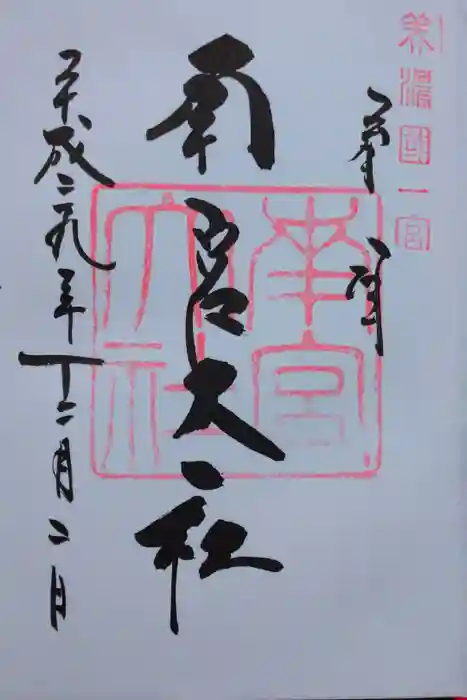 美濃國一宮
奉拝
南宮大社
南宮大社
平成二九年十二月二日